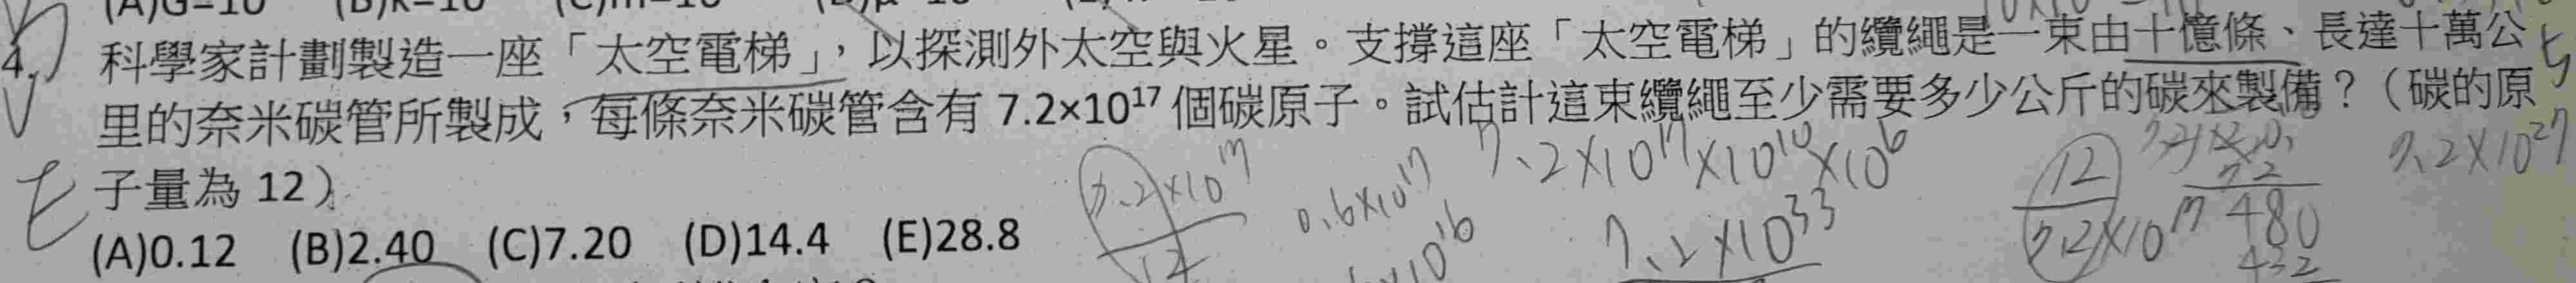 4. 科學家計劃製造一座「太空電梯」，以探測外太空與火星。支撐這座「太空電梯」的纜繩是一束由十憶條、長達十萬公
里的奈米碳管所製成，每條奈米碳管含有 7.2×10¹⁷ 個碳原子。試估計這束纜繩至少需要多少公斤的碳來製備？（碳的原
子量為 12）
(A)0.12 (B)2.40 (C)7.20 (D)14.4 (E)28.8
7.2×10¹⁷
12
0.6×10¹⁷
7.2×10¹⁷×10¹⁰×10⁶
7.2×10³³
12
7.2×10¹⁷
7.2
480
432
7.2×10²⁷